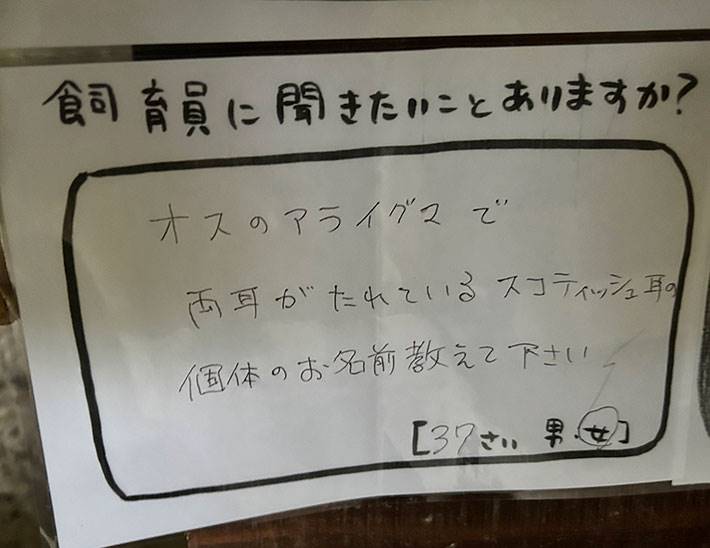 飼育員に聞きたいことありますか?
オスのアライグマで
両耳がたれているスコティッシュ耳の
個体のお名前教えて下さい
[37さい 男・女]